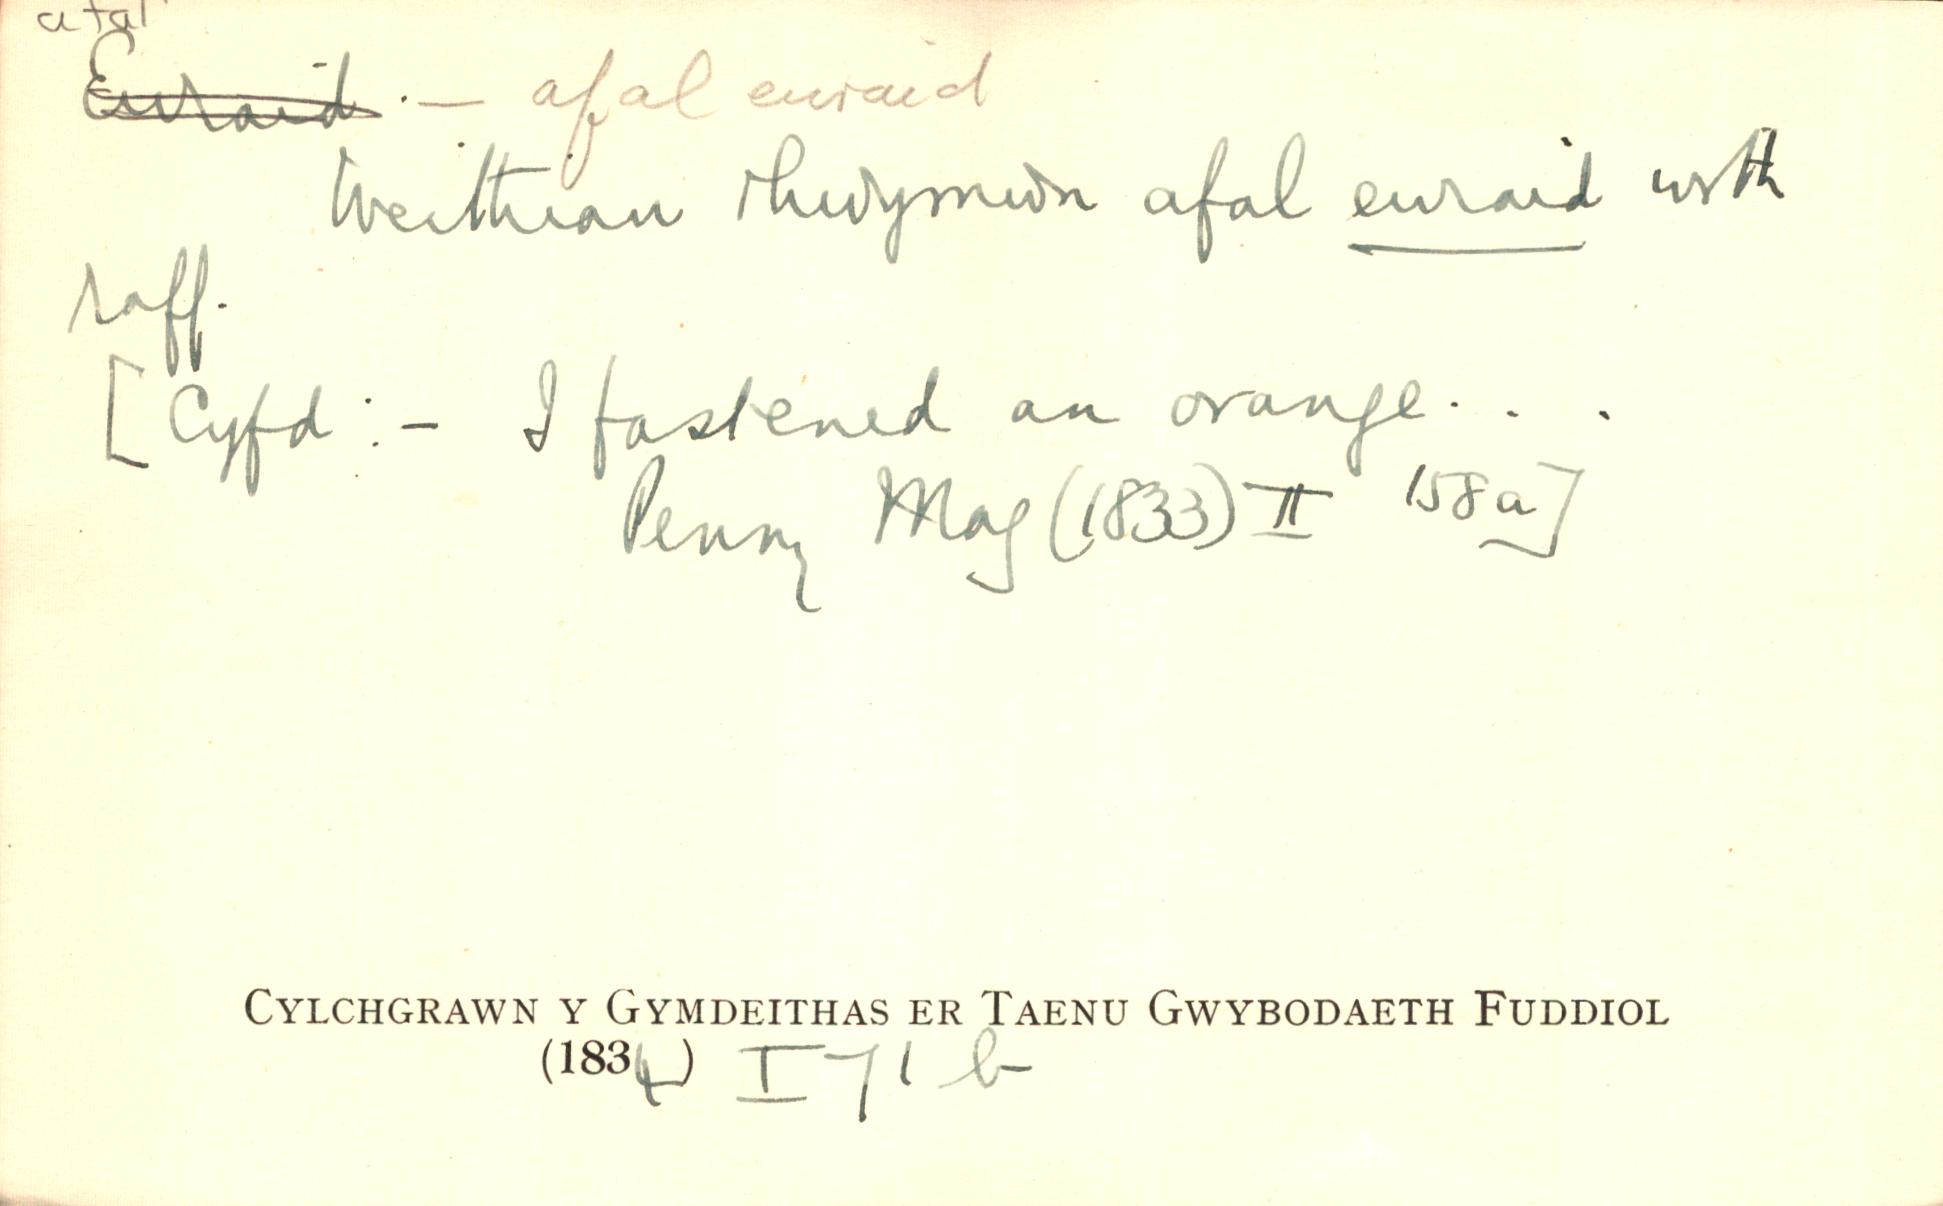 afal
Euraid :- afal euraid
Weithian rhwymwn afal euraid wrth
raff.
[Cyfd :- I fastened an orange . . .
Penny Mag (1833) II 158a]
CYLCHGRAWN Y GYMDEITHAS ER TAENU GWYBODAETH FUDDIOL
(1834) I 71 b